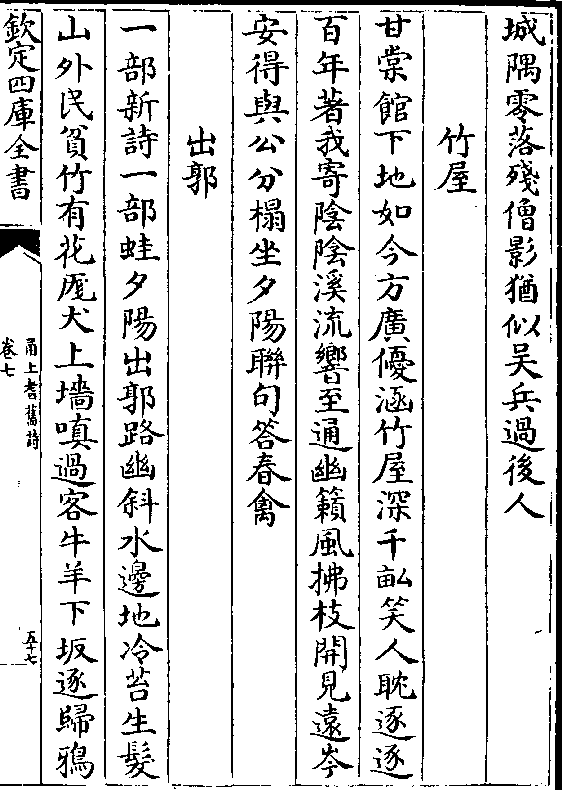 城隅零落殘僧影猶似吴兵過後人
竹屋
甘棠館下地如今方廣優涵竹屋深千畝笑人耽逐逐
百年著我寄陰陰溪流響至通幽籟風拂枝開見遠岑
安得與公分榻坐夕陽聯句答春禽
出郭
一部新詩一部蛙夕陽出郭路幽斜水邊地冷苔生髮
山外民貧竹有花厖犬上墻嗔過客牛羊下坂逐歸鴉
欽定四庫全書
甬上耆舊詩
卷七
五十七